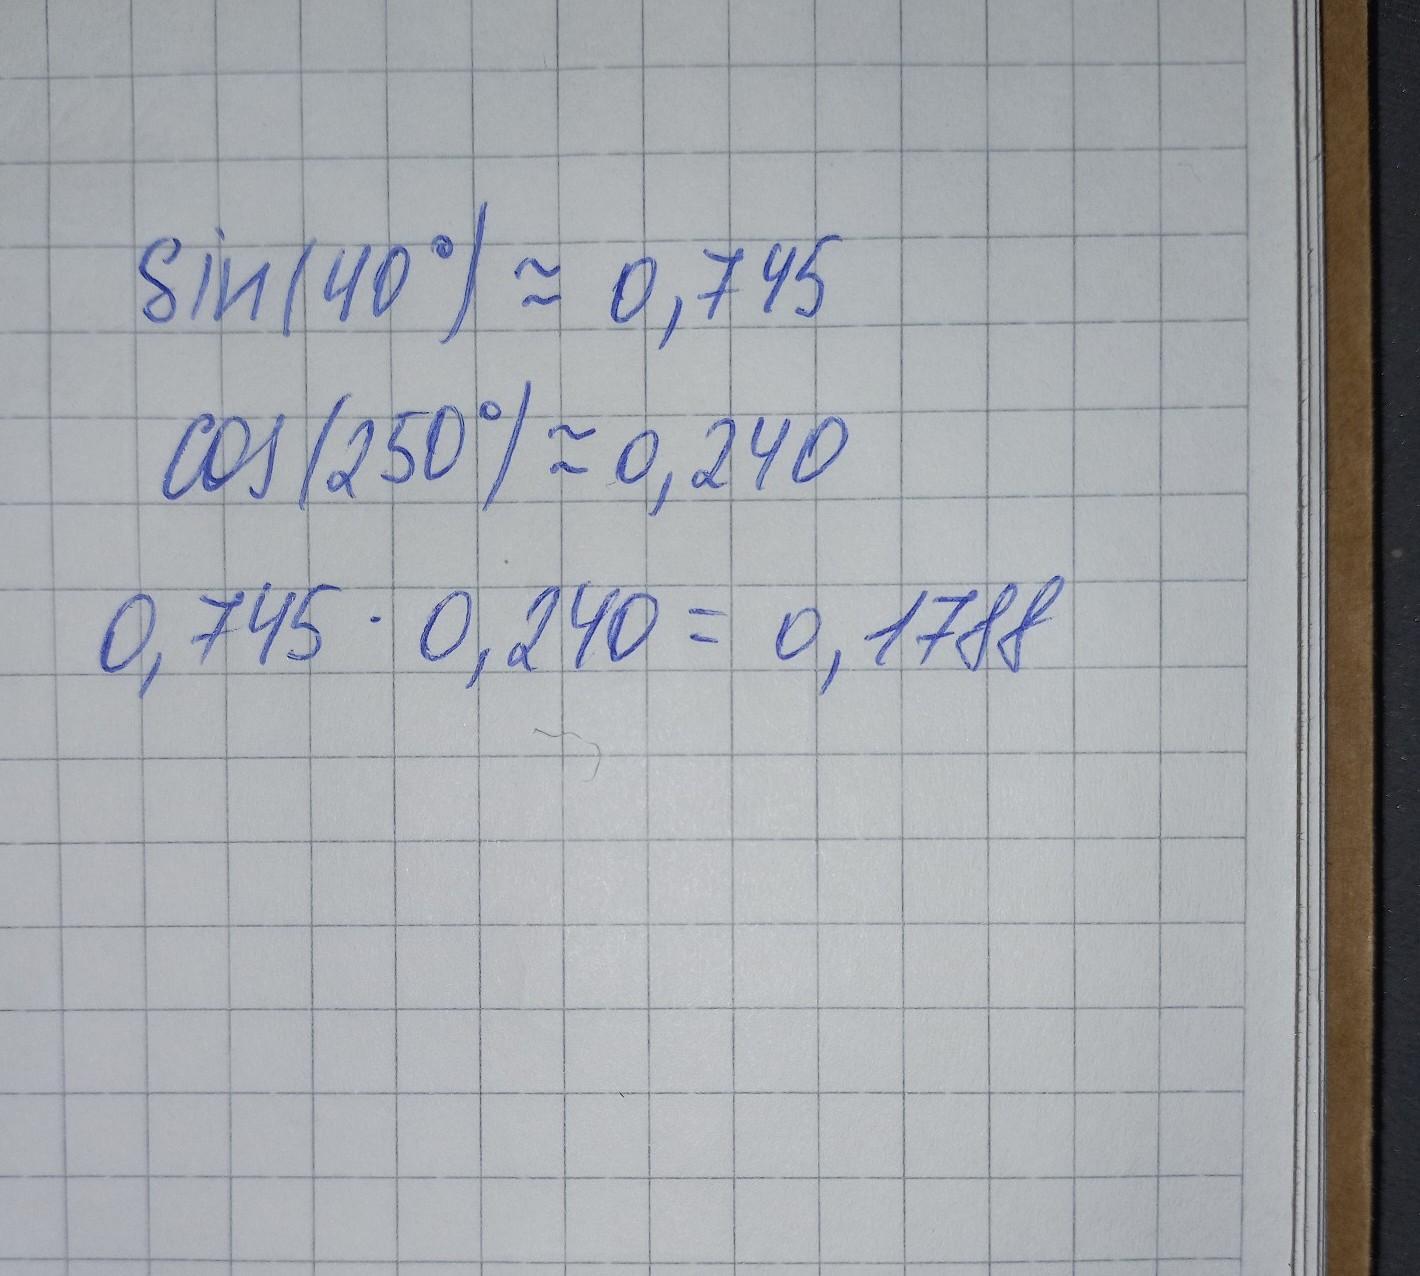 sin(40°) ≈ 0,745
cos(250°) ≈ 0,240
0,745 · 0,240 = 0,1788